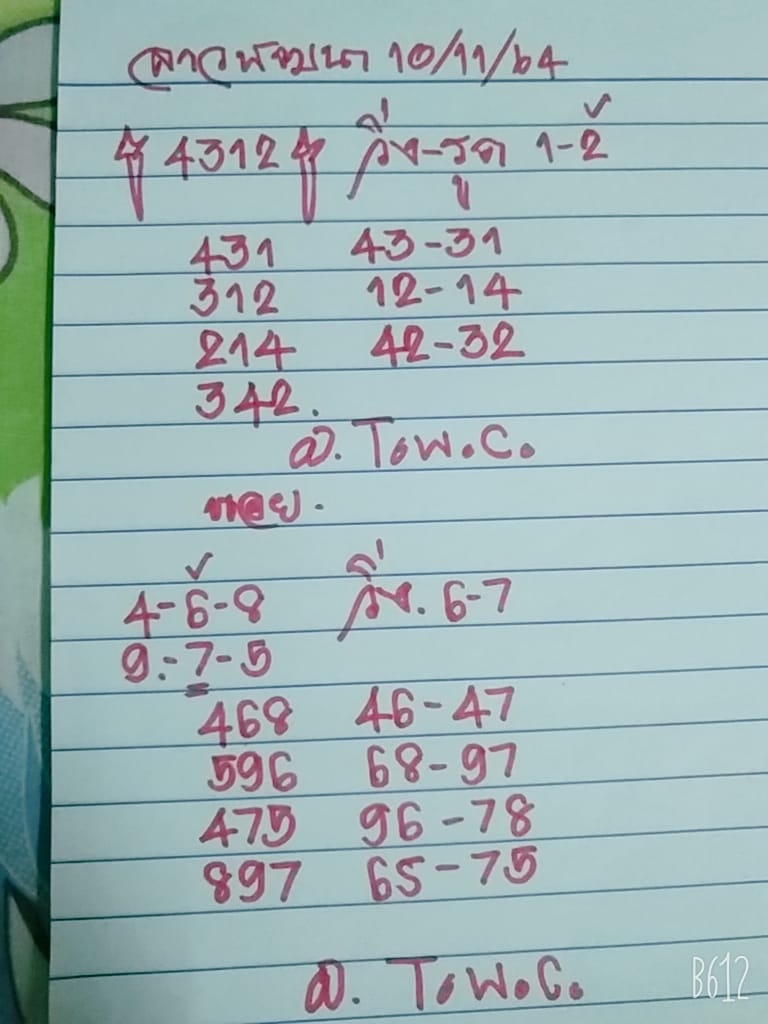 ลาวพัฒนา 10/11/64
4312 วิ่ง-รูด 1-2
431 43-31
312 12-14
214 42-32
342.
อ. T.W.C.
หอย.
4-6-8 วิ่ง. 6-7
9.-7-5
468 46-47
596 68-97
475 96-78
897 65-75
อ. T.W.C.
B612